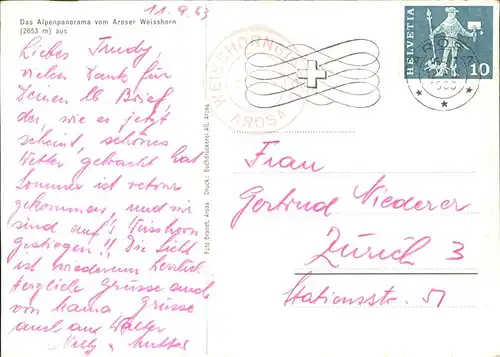 11.9.63
Das Alpenpanorama vom Aroser Weisshorn
(2653 m) aus
Liebes Trudy,
vielen Dank für
Deinen lb Brief,
der, wie es jetzt
scheint, schönes
Wetter gebracht hat
Sommer ist retour
gekommen, und wir
sind auf's Weisshorn
gestiegen!! Die Sicht
ist wiederum herrlich
Herzliche Grüsse auch
von Mama Grüsse
auch an Walter
Nelly
Foto Brandt, Arosa Druck: Buchdruckerei AG, Arosa
WEISSHORN
AROSA
HELVETIA
10
Frau
Gertrud Niederer
Zürich 3
Stationsstr. 51